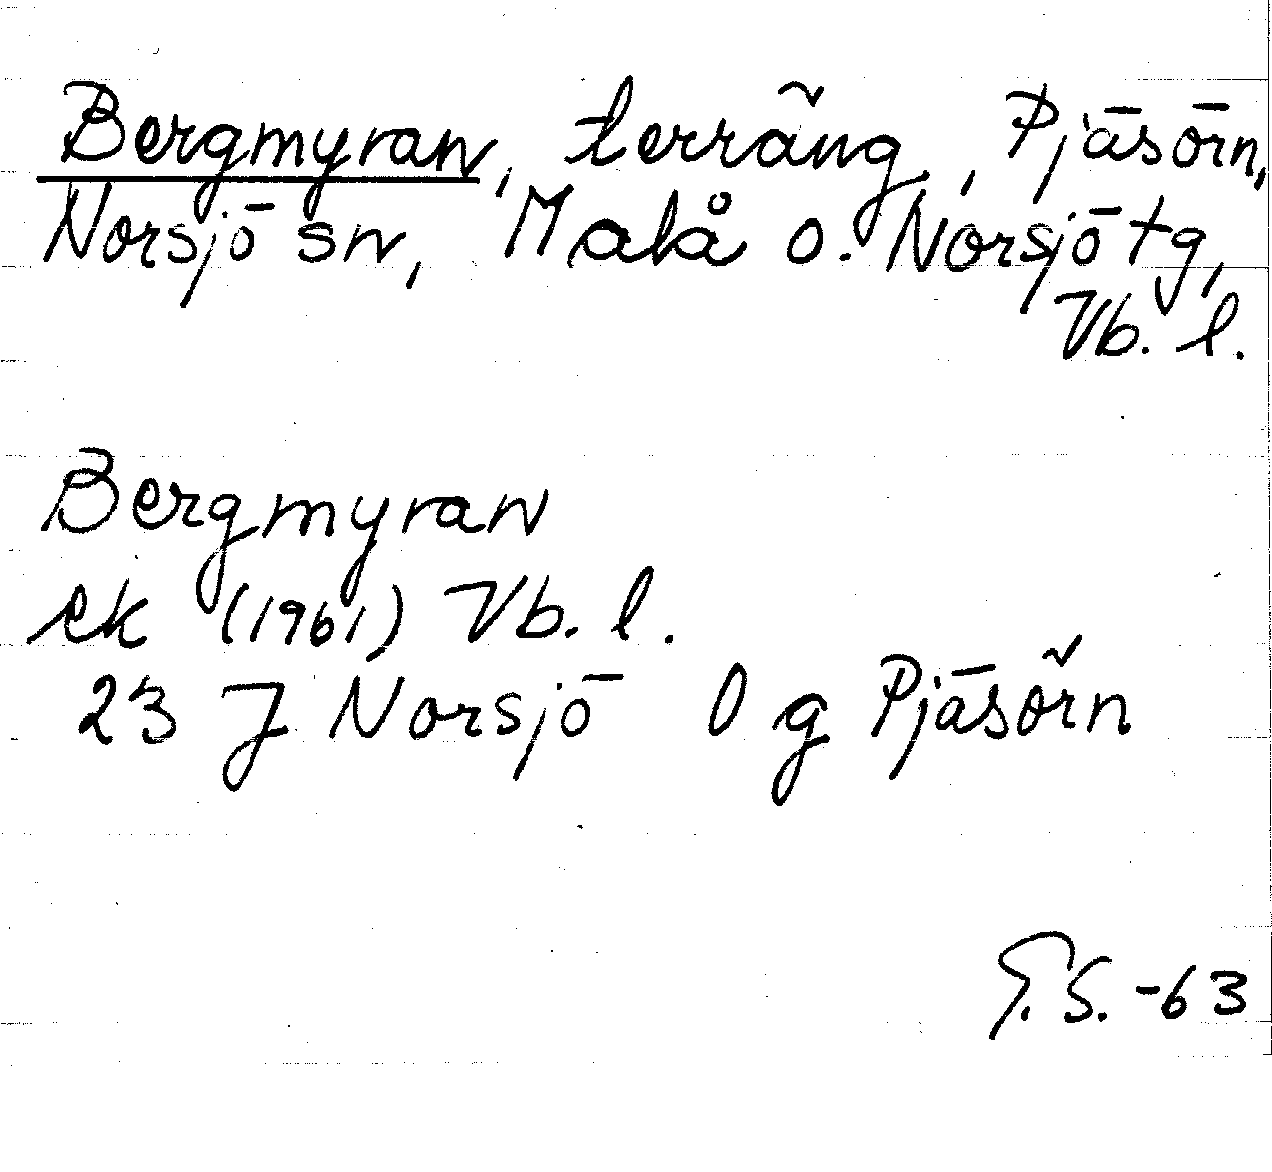 Bergmyran, terräng, Pjäsörn,
Norsjö sn, Malå o. Norsjö tg,
Vb. l.
Bergmyran
ek (1961) Vb. l.
23 J Norsjö 0 g Pjäsörn
S. -63